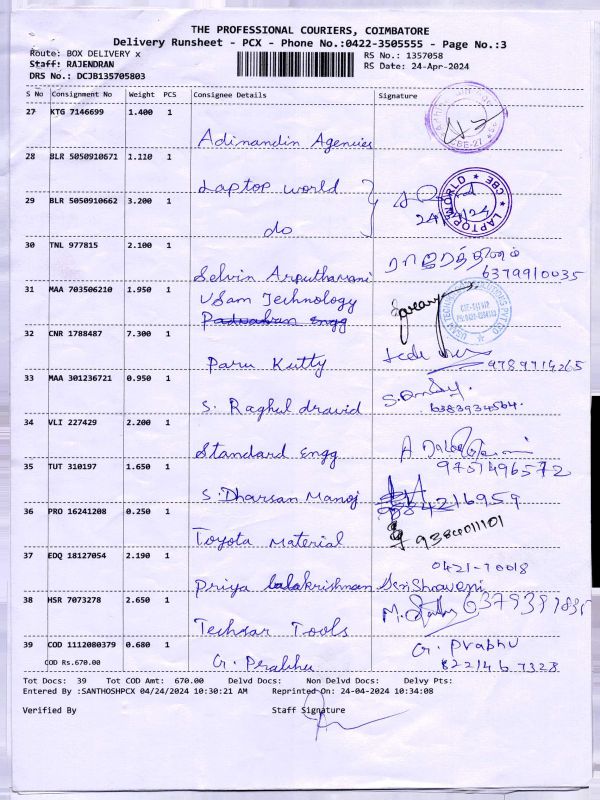 THE PROFESSIONAL COURIERS, COIMBATORE
Delivery Runsheet - PCX - Phone No.:0422-3505555 - Page No.:3
Route: BOX DELIVERY x RS No.: 1357058
Staff: RAJENDRAN RS Date: 24-Apr-2024
DRS No.: DCJB135705803
S No Consignment No Weight PCS Consignee Details Signature
27 KTG 7146699 1.400 1
Adinandin Agencies
28 BLR 5050910671 1.110 1
Laptop world
29 BLR 5050910662 3.200 1
do
LAPTOP WORLD ★ CBE ★
30 TNL 977815 2.100 1
Selvin Arputharani 6379910035
31 MAA 703506210 1.950 1
USam Technology
Padvahan Engg
32 CNR 1788487 7.300 1
Paru Kutty 9789714265
33 MAA 301236721 0.950 1
S. Raghul dravid 6383934564.
34 VLI 227429 2.200 1
Standard Engg 9751496572
35 TUT 310197 1.650 1
S. Dharsan Manoj
36 PRO 16241208 0.250 1
Toyota Material
37 EDQ 18127054 2.190 1 0421-70018
Priya balakrishnan
38 HSR 7073278 2.650 1
Techsar Tools
39 COD 1112080379 0.680 1 G. Prabhu
COD Rs.670.00 G. Prabhu 822146 7328
Tot Docs: 39 Tot COD Amt: 670.00 Delvd Docs: Non Delvd Docs: Delvy Pts:
Entered By :SANTHOSHPCX 04/24/2024 10:30:21 AM Reprinted On: 24-04-2024 10:34:08
Verified By Staff Signature